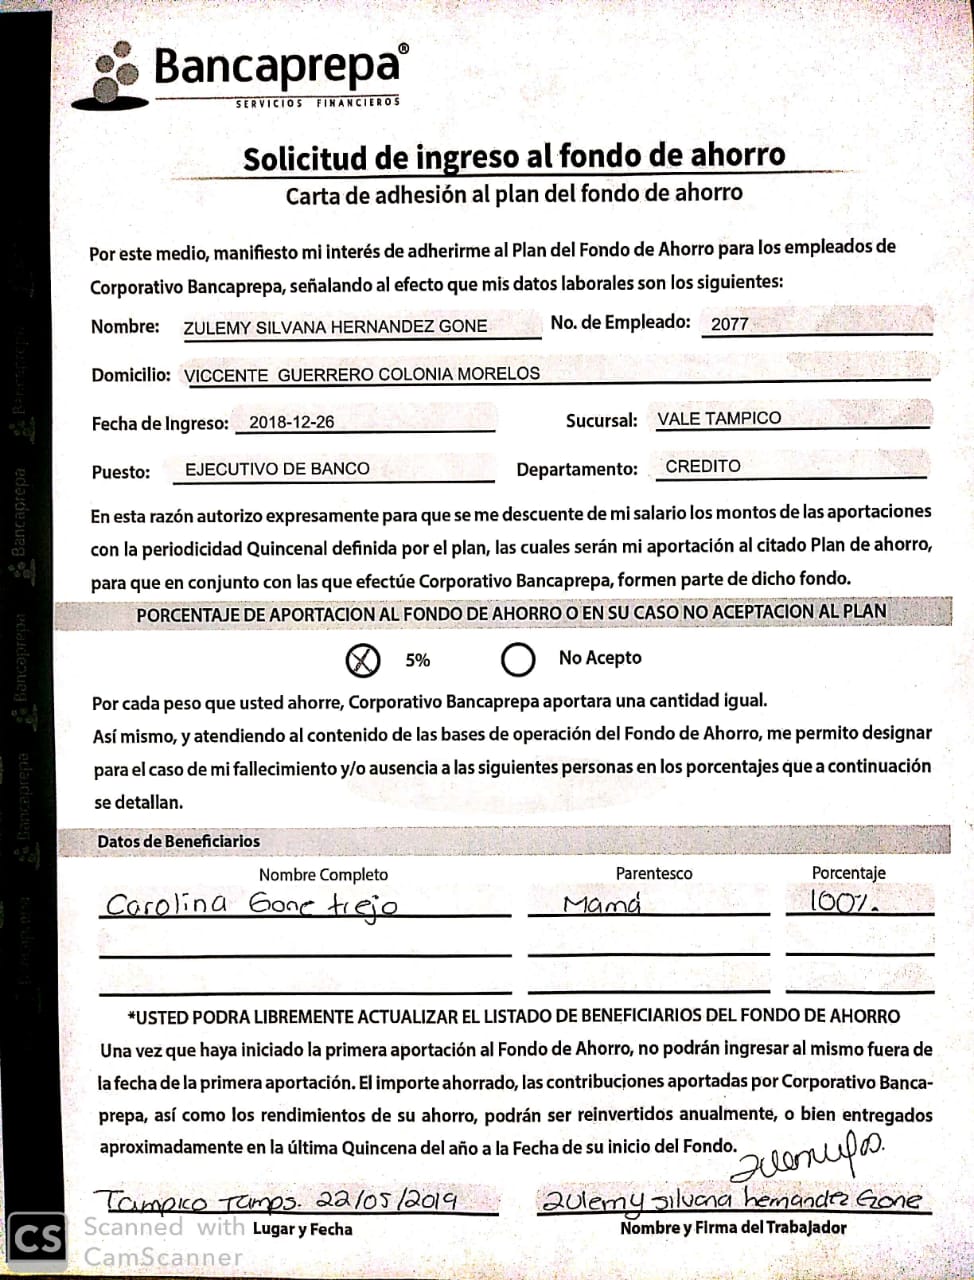 Bancaprepa®
SERVICIOS FINANCIEROS
Solicitud de ingreso al fondo de ahorro
Carta de adhesión al plan del fondo de ahorro
Por este medio, manifiesto mi interés de adherirme al Plan del Fondo de Ahorro para los empleados de
Corporativo Bancaprepa, señalando al efecto que mis datos laborales son los siguientes:
Nombre: ZULEMY SILVANA HERNANDEZ GONE No. de Empleado: 2077
Domicilio: VICCENTE GUERRERO COLONIA MORELOS
Fecha de Ingreso: 2018-12-26 Sucursal: VALE TAMPICO
Puesto: EJECUTIVO DE BANCO Departamento: CREDITO
En esta razón autorizo expresamente para que se me descuente de mi salario los montos de las aportaciones
con la periodicidad Quincenal definida por el plan, las cuales serán mi aportación al citado Plan de ahorro,
para que en conjunto con las que efectúe Corporativo Bancaprepa, formen parte de dicho fondo.
PORCENTAJE DE APORTACION AL FONDO DE AHORRO O EN SU CASO NO ACEPTACION AL PLAN
5% No Acepto
Por cada peso que usted ahorre, Corporativo Bancaprepa aportara una cantidad igual.
Así mismo, y atendiendo al contenido de las bases de operación del Fondo de Ahorro, me permito designar
para el caso de mi fallecimiento y/o ausencia a las siguientes personas en los porcentajes que a continuación
se detallan.
Datos de Beneficiarios
Nombre Completo Parentesco Porcentaje
Carolina Gone trejo Mamá 100%.
*USTED PODRA LIBREMENTE ACTUALIZAR EL LISTADO DE BENEFICIARIOS DEL FONDO DE AHORRO
Una vez que haya iniciado la primera aportación al Fondo de Ahorro, no podrán ingresar al mismo fuera de
la fecha de la primera aportación. El importe ahorrado, las contribuciones aportadas por Corporativo Banca-
prepa, así como los rendimientos de su ahorro, podrán ser reinvertidos anualmente, o bien entregados
aproximadamente en la última Quincena del año a la Fecha de su inicio del Fondo.
Tampico Tamps. 22/05/2019 zulemy silvana hernandez Gone
Lugar y Fecha Nombre y Firma del Trabajador
CS Scanned with
CamScanner